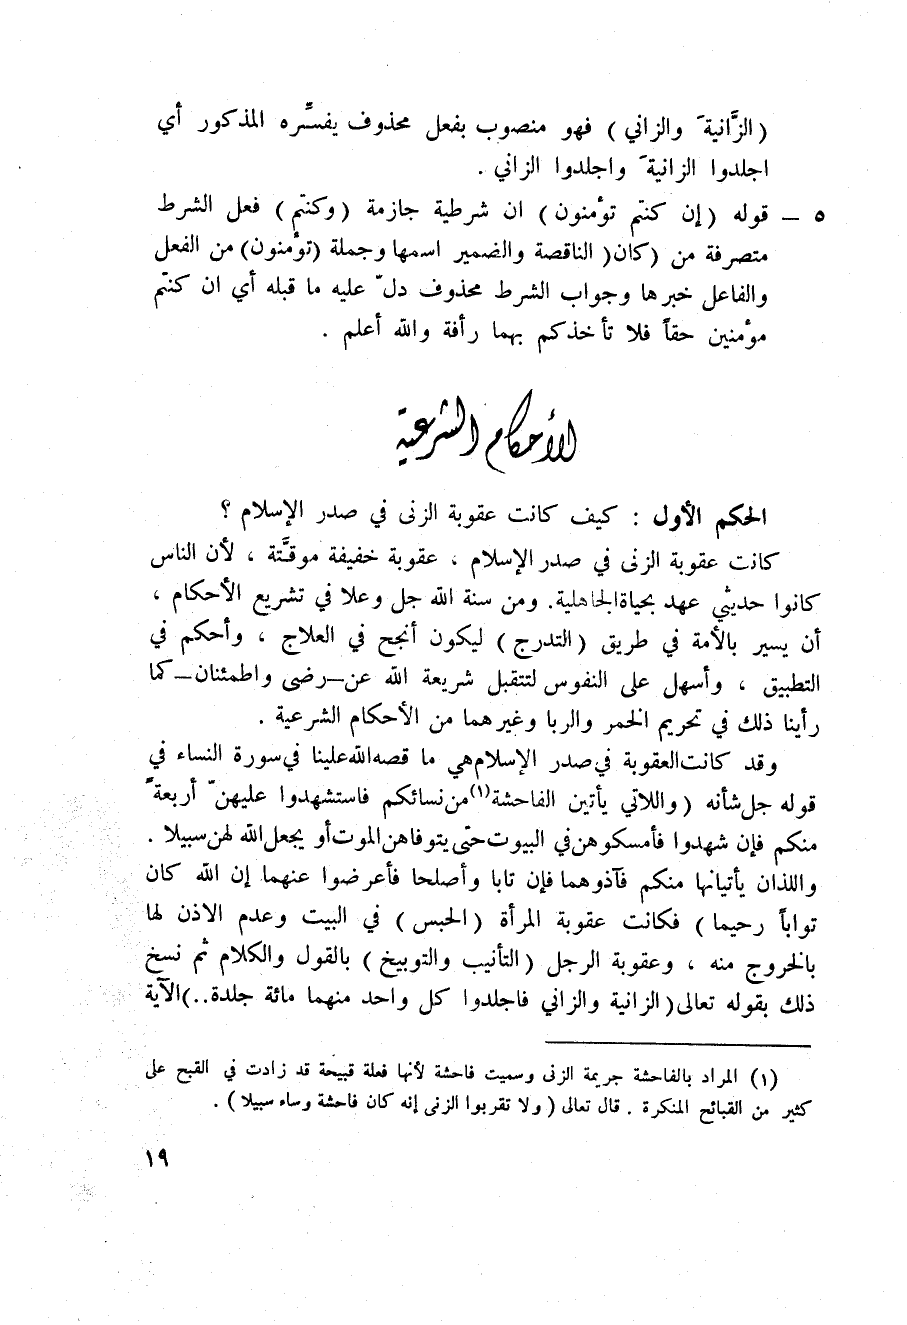 (الزَّانيةَ والزاني) فهو منصوب بفعل محذوف يفسِّره المذكور أي
اجلدوا الزانيةَ واجلدوا الزاني .
٥ – قوله (إن كنتم تؤمنون) ان شرطية جازمة (وكنتم) فعل الشرط
متصرفة من (كان( الناقصة والضمير اسمها وجملة (تؤمنون) من الفعل
والفاعل خبرها وجواب الشرط محذوف دلّ عليه ما قبله أي ان كنتم
مؤمنين حقاً فلا تأخذكم بهما رأفة والله أعلم .
الأحكام الشرعية
الحكم الأول : كيف كانت عقوبة الزنى في صدر الإسلام ؟
كانت عقوبة الزنى في صدر الإسلام ، عقوبة خفيفة موقَّتة ، لأن الناس
كانوا حديثي عهد بحياة الجاهلية. ومن سنة الله جل وعلا في تشريع الأحكام ،
أن يسير بالأمة في طريق (التدرج) ليكون أنجح في العلاج ، وأحكم في
التطبيق ، وأسهل على النفوس لتتقبل شريعة الله عن–رضى واطمئنان–كما
رأينا ذلك في تحريم الخمر والربا وغيرهما من الأحكام الشرعية .
وقد كانت العقوبة في صدر الإسلام هي ما قصه الله علينا في سورة النساء في
قوله جل شأنه (واللاتي يأتين الفاحشة(١) من نسائكم فاستشهدوا عليهنّ أربعةً
منكم فإن شهدوا فأمسكوهن في البيوت حتى يتوفاهن الموت أو يجعل الله لهن سبيلا .
واللذان يأتيانها منكم فآذوهما فإن تابا وأصلحا فأعرضوا عنهما إن الله كان
تواباً رحيما) فكانت عقوبة المرأة (الحبس) في البيت وعدم الاذن لها
بالخروج منه ، وعقوبة الرجل (التأنيب والتوبيخ) بالقول والكلام ثم نسخ
ذلك بقوله تعالى (الزانية والزاني فاجلدوا كل واحد منهما مائة جلدة..)الآية
(١) المراد بالفاحشة جريمة الزنى وسميت فاحشة لأنها فعلة قبيحة قد زادت في القبح على
كثير من القبائح المنكرة . قال تعالى (ولا تقربوا الزنى إنه كان فاحشة وساء سبيلا) .
١٩